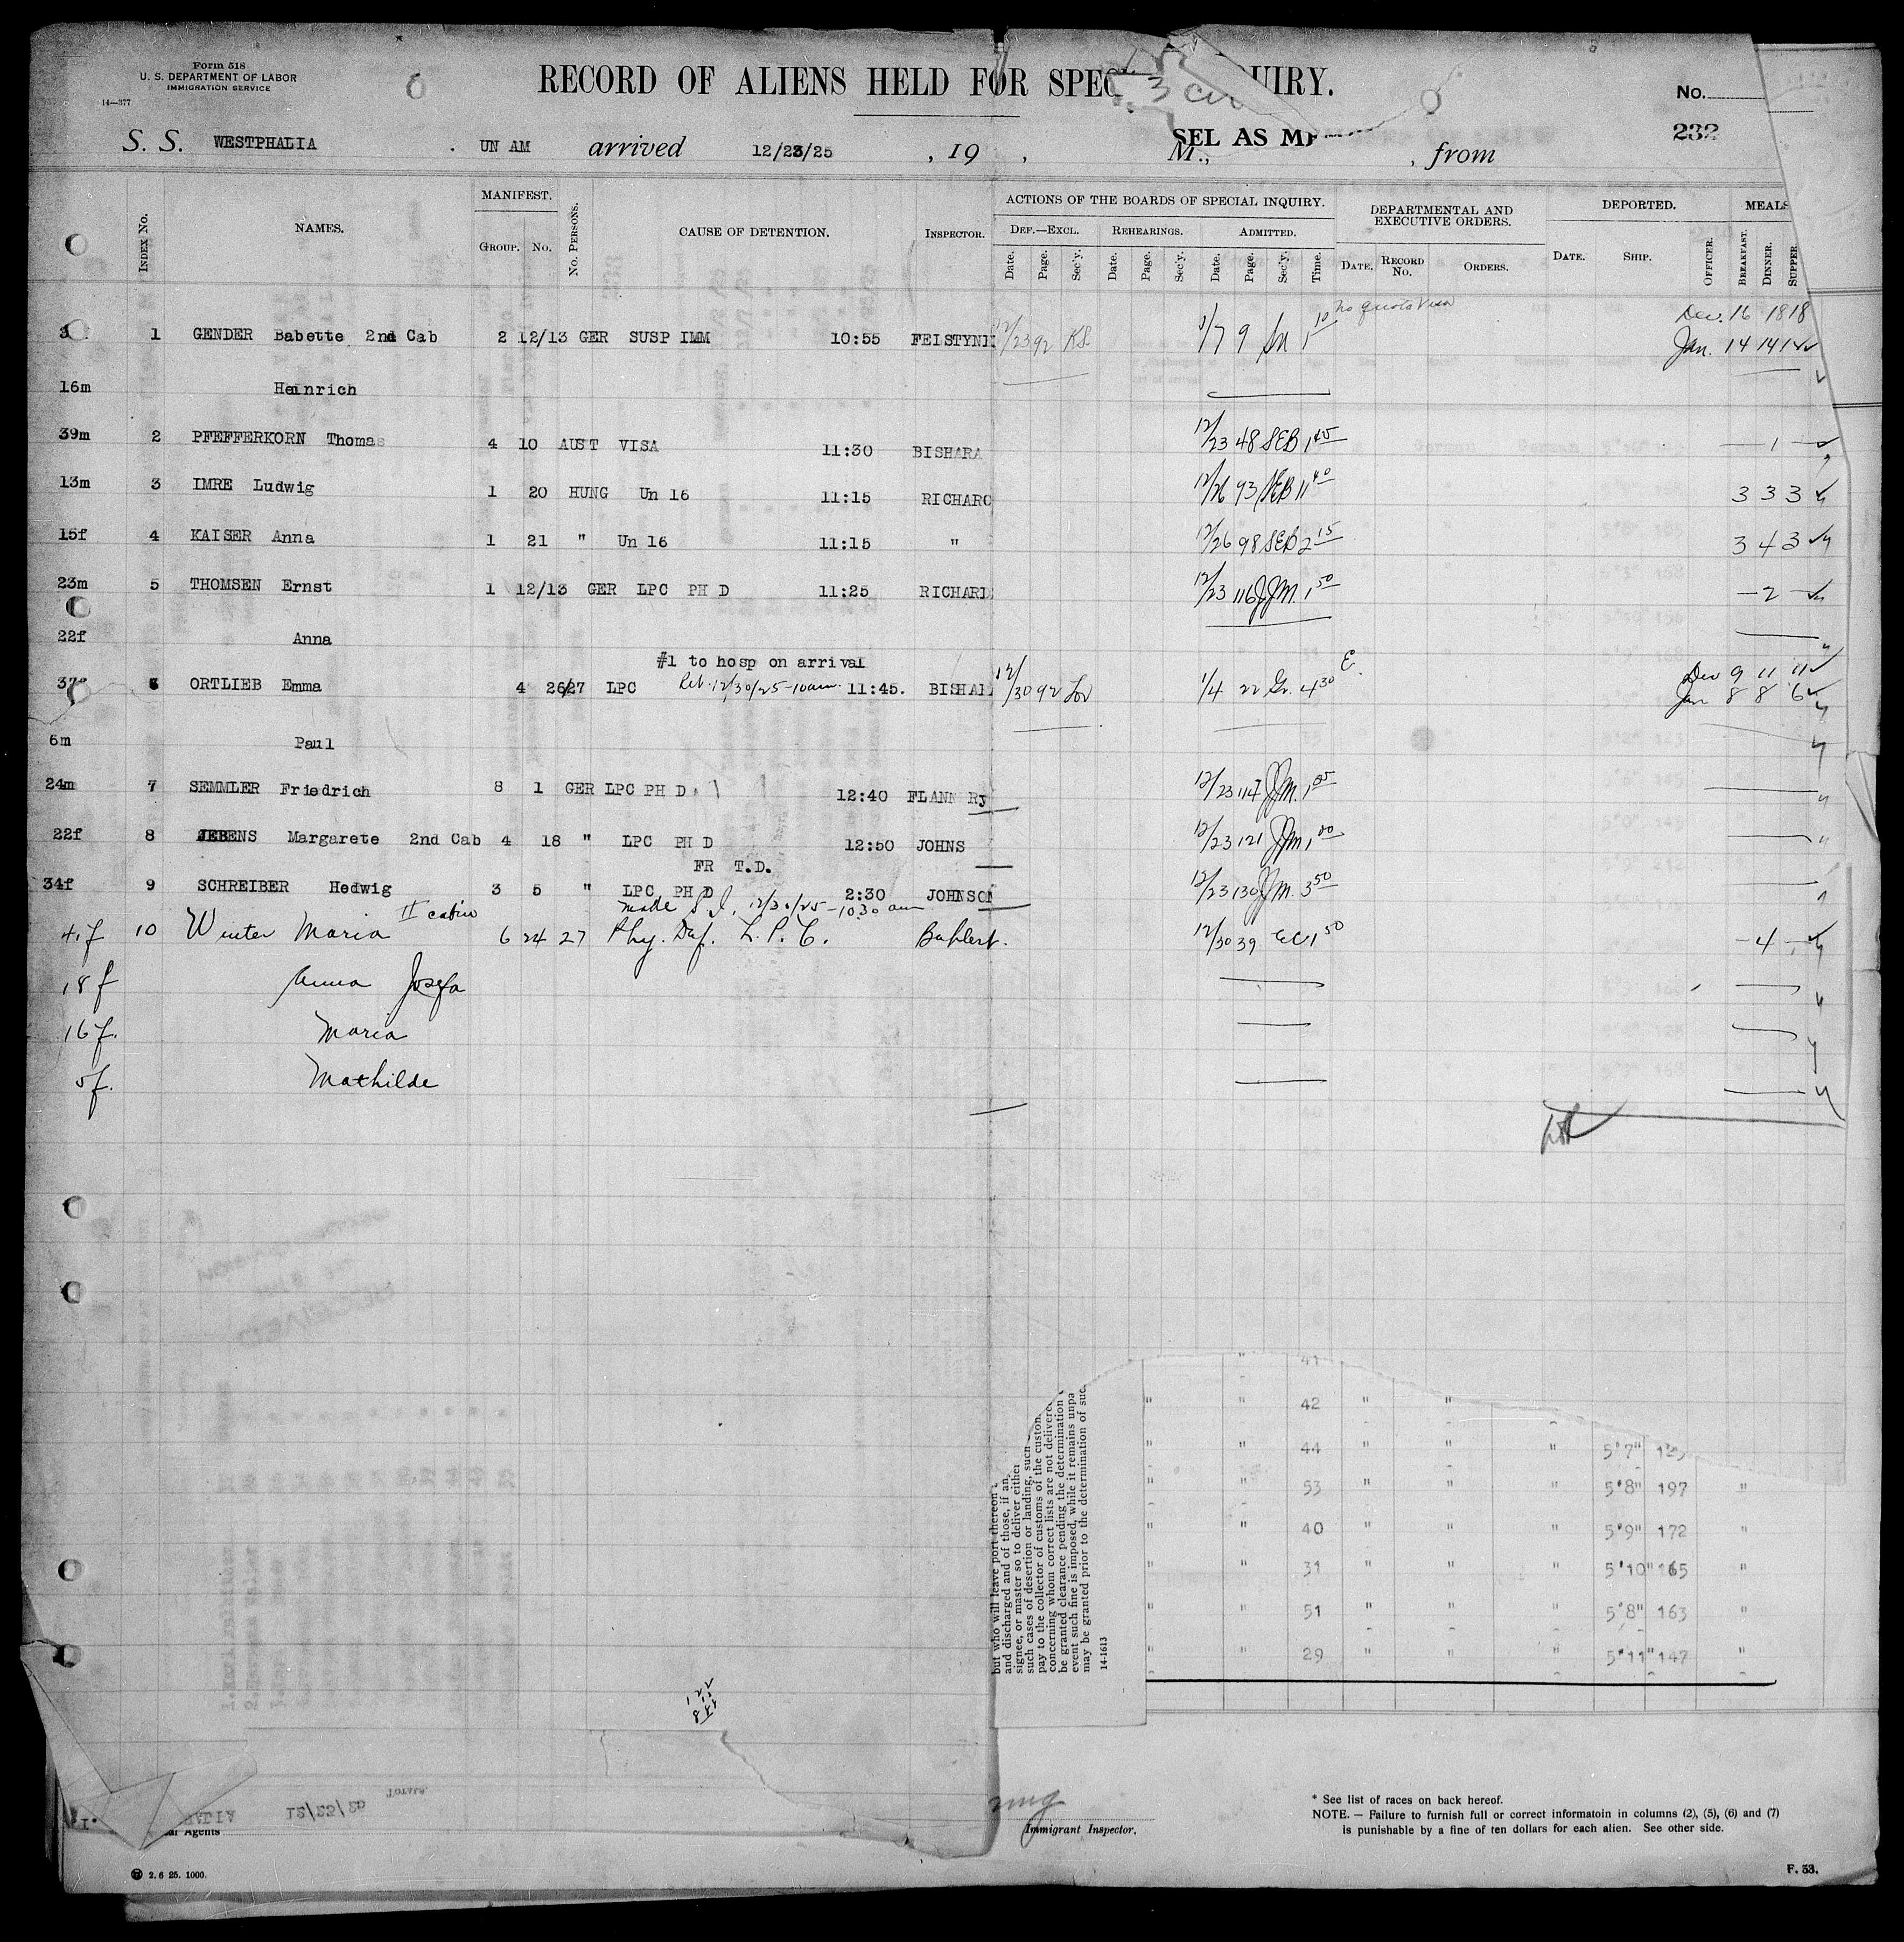 Form 518
U. S. DEPARTMENT OF LABOR
IMMIGRATION SERVICE
14—377
RECORD OF ALIENS HELD FOR SPEC UIRY.
3
No.
232
SEL AS
S. S. WESTPHALIA UN AM arrived 12/23/25 , 19 , M., , from
INDEX No. NAMES. MANIFEST. GROUP. No. No. PERSONS. CAUSE OF DETENTION. INSPECTOR. ACTIONS OF THE BOARDS OF SPECIAL INQUIRY. DEPARTMENTAL AND EXECUTIVE ORDERS. DEPORTED. MEALS
DEF.—EXCL. REHEARINGS. ADMITTED.
Date. Page. Sec'y. Date. Page. Sec'y. Date. Page. Sec'y. Time. DATE. RECORD No. ORDERS. DATE. SHIP. OFFICER. BREAKFAST. DINNER. SUPPER
No quota Visa
Dec. 16 18 18
3 1 GENDER Babette 2nd Cab 2 12/13 GER SUSP IMM 10:55 FEISTYNE 12/23 92 KS 1/7 9 1 10 Jan. 14 14 14
16m Heinrich
39m 2 PFEFFERKORN Thomas 4 10 AUST VISA 11:30 BISHARA 12/23 48 SEB 1 45 — 1 —
13m 3 IMRE Ludwig 1 20 HUNG Un 16 11:15 RICHARD 12/26 93 SEB 11 40 3 3 3
15f 4 KAISER Anna 1 21 " Un 16 11:15 " 12/26 98 SEB 2 15 3 4 3
23m 5 THOMSEN Ernst 1 12/13 GER LPC PH D 11:25 RICHARD 12/23 116 JJM. 1 50 — 2 —
22f Anna
#1 to hosp on arrival
37f 6 ORTLIEB Emma 4 26/27 LPC Ret. 12/30/25 - 10 am. 11:45. BISHAR 12/30 92 1/4 22 Gr. 4 30 E. Dec 9 11 11
Jan 8 8 6
6m Paul
24m 7 SEMMLER Friedrich 8 1 GER LPC PH D 12:40 FLANN RY 12/23 117 JJM. 1 05
22f 8 JEBENS Margarete 2nd Cab 4 18 " LPC PH D 12:50 JOHNS 12/23 121 JJM 1 00
FR T.D.
34f 9 SCHREIBER Hedwig 3 5 " LPC PH D 2:30 JOHNSON 12/23 130 JJM. 3 50
II cabin made S I, 12/30/25 - 10 30 am
41f 10 Winter Maria 6 24 27 Phy. Def. L. P. C. 12/30 39 EC 1 50 — 4 —
18f Anna Josefa
16f. Maria
5f. Mathilde
41
" " 42 " "
" " 44 " " " 5'7"
" " 53 " " " 5'8" 197 "
" " 40 " " " 5'9" 172 "
" " 31 " " " 5'10" 165 "
" " 51 " " " 5'8" 163 "
" " 29 " " " 5'11" 147 "
but who will leave port thereon
and discharged and of those, if an
signee, or master so to deliver either
such cases of desertion or landing, such
pay to the collector of customs of the custom
concerning whom correct lists are not delivere
be granted clearance pending the determination
event such fine is imposed, while it remains unpa
may be granted prior to the determination of suc
14-1613
TOTALS.
12/23/25
Agents
Immigrant Inspector.
* See list of races on back hereof.
NOTE. — Failure to furnish full or correct informatoin in columns (2), (5), (6) and (7)
is punishable by a fine of ten dollars for each alien. See other side.
2. 6 25. 1000.
F. 53.